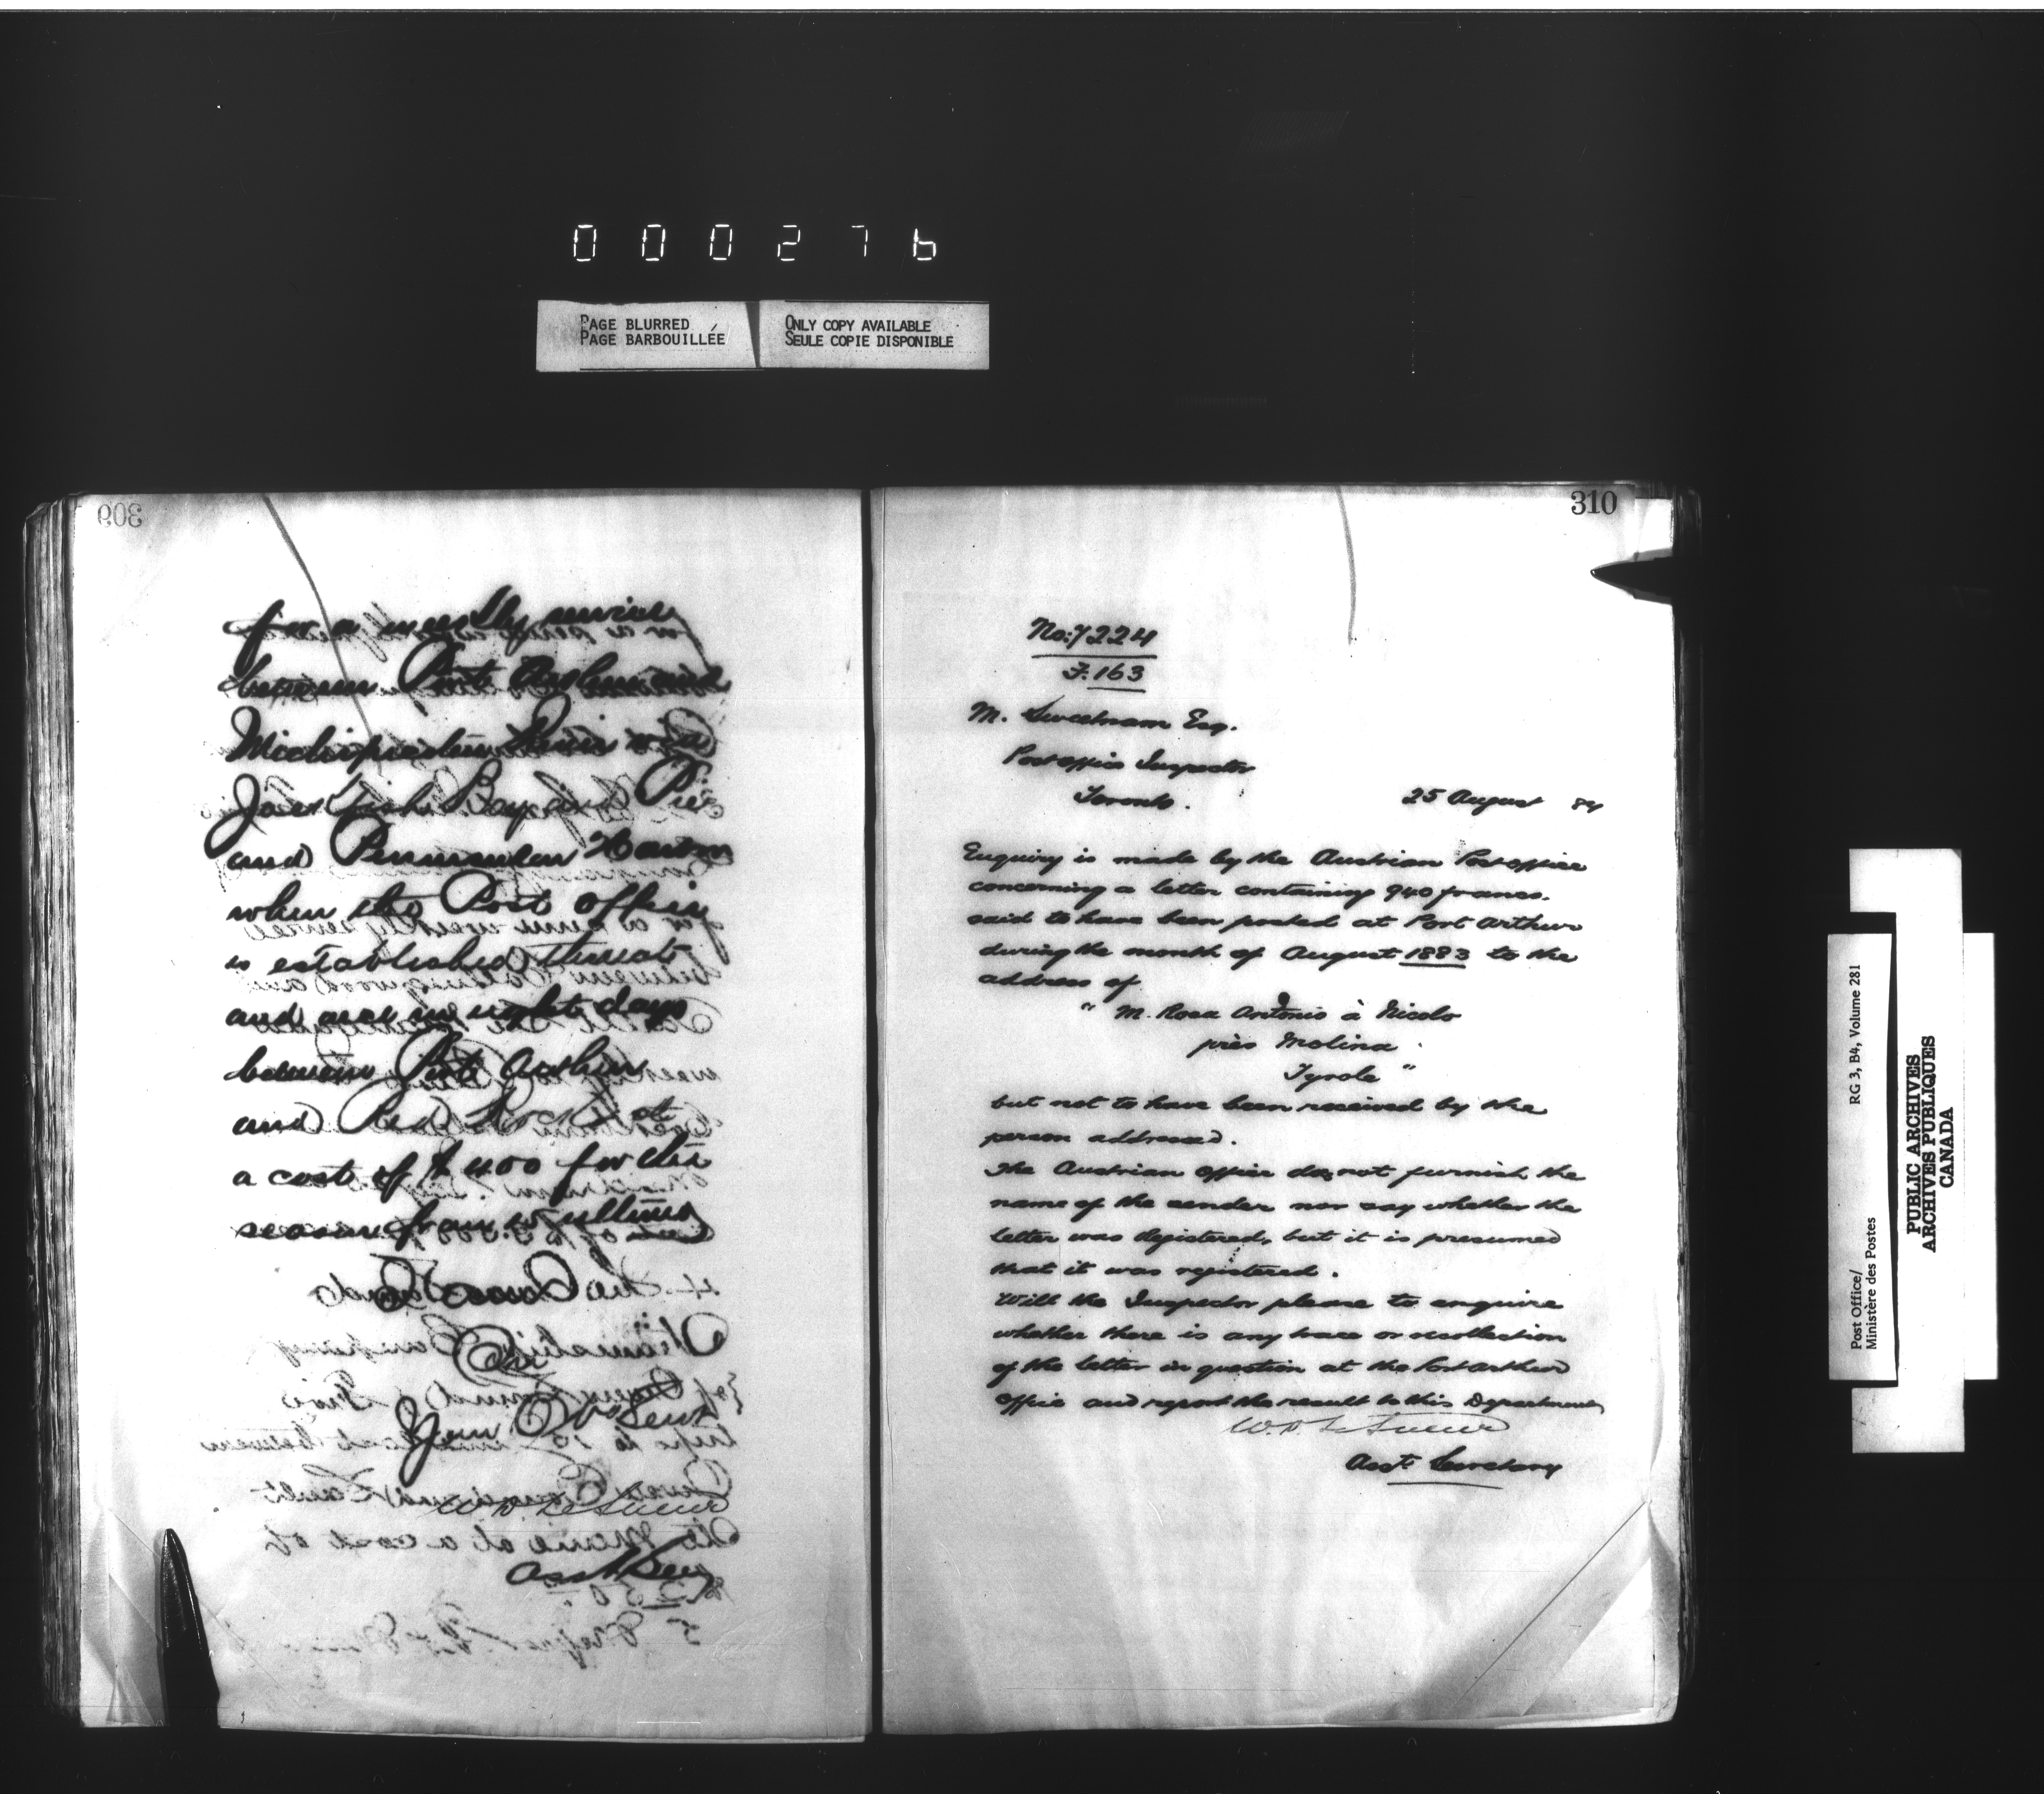 000276
PAGE BLURRED
PAGE BARBOUILLÉE
ONLY COPY AVAILABLE
SEULE COPIE DISPONIBLE
309
for a weekly service
between Port Arthur and
Michipicoten River via
Jackfish Bay and Pic
and Peninsular Harbor
when the Post Office
is established thereat
and once in eight days
between Port Arthur
and Red Rock at
a cost of $400 for the
season from
I am
Sir
Your Obt Servt
W. D. LeSueur
Asst Secy
310
No: 7224
F. 163
M. Sweetnam Esq.
Post office Inspector
Toronto.
25 August 84
Enquiry is made by the Austrian Post office
concerning a letter containing 940 francs.
said to have been posted at Port Arthur
during the month of August 1883 to the
address of
" M. Rosa Antonio à Nicolo
près Molina
Tyrole "
but not to have been received by the
person addressed.
The Austrian office does not furnish the
name of the sender nor say whether the
letter was Registered, but it is presumed
that it was registered.
Will the Inspector please to enquire
whether there is any trace or recollection
of the letter in question at the Port Arthur
office and report the result to this Department
W. D. LeSueur
Asst. Secretary
Post Office/
Ministère des Postes
RG 3, B4, Volume 281
PUBLIC ARCHIVES
ARCHIVES PUBLIQUES
CANADA